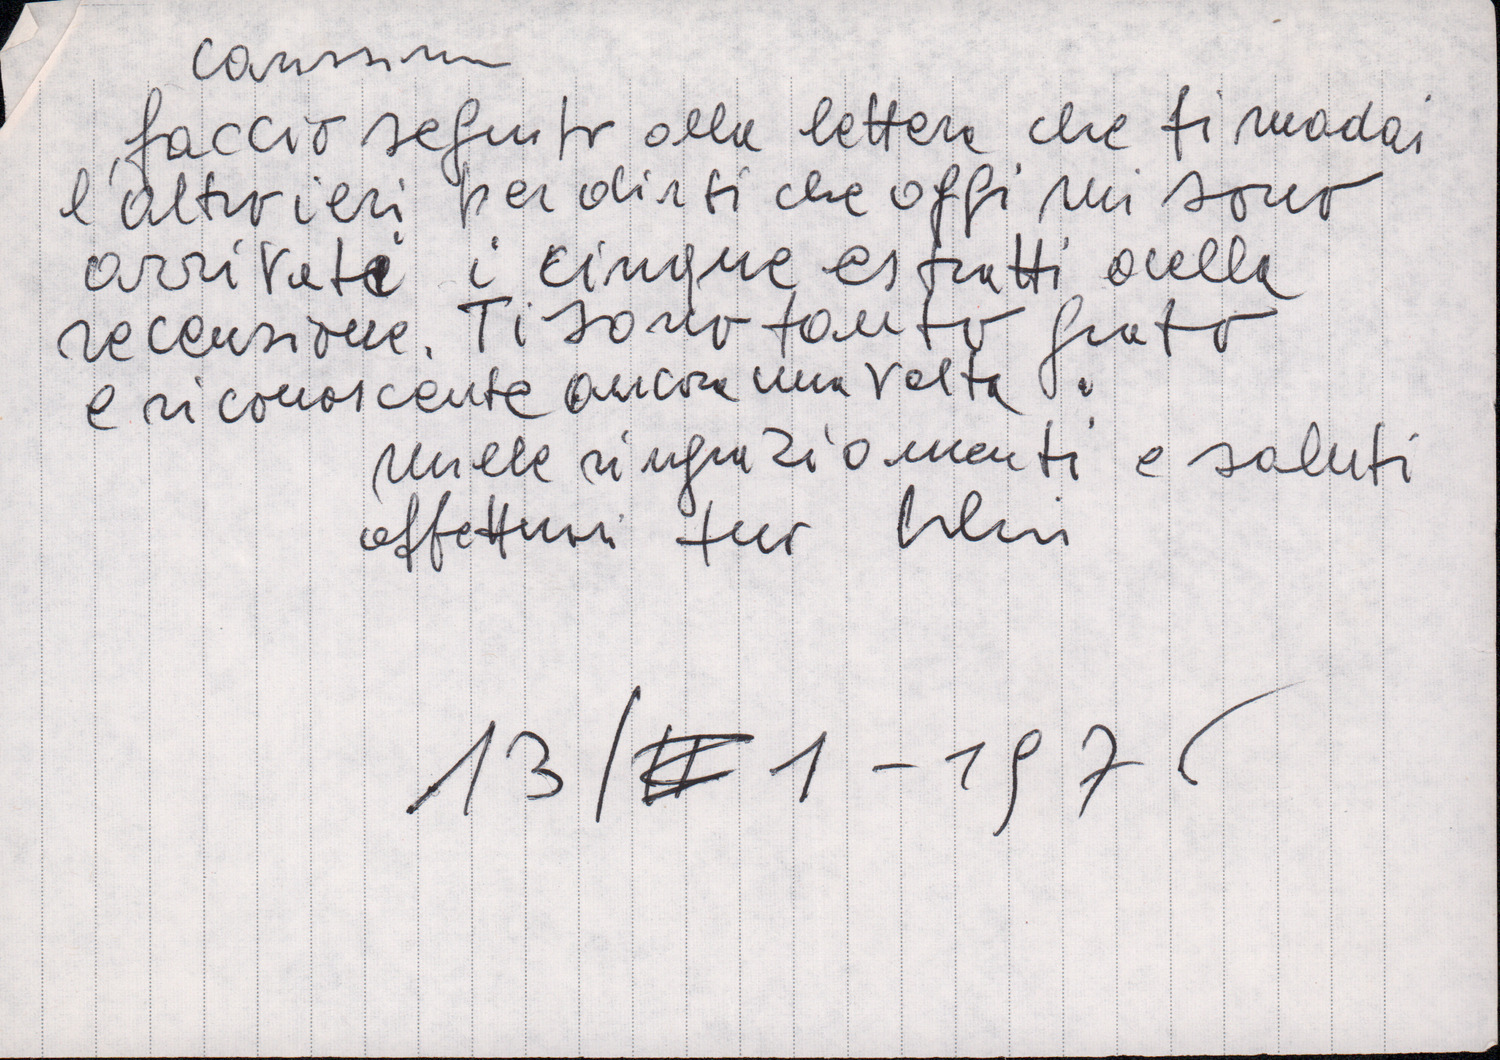 carissimo
faccio seguito alla lettera che ti madai
l'altro ieri per dirti che oggi mi sono
arrivati i cinque estratti della
recensione. Ti sono tanto grato
e riconoscente ancora una volta.
mille ringraziamenti e saluti
affettuosi tuo
13/1-1976